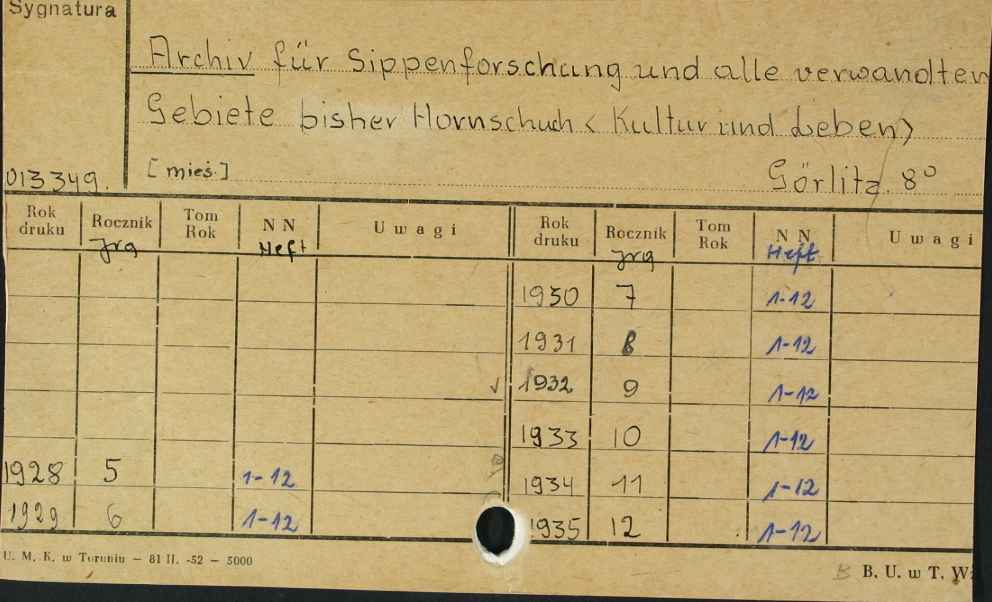 Sygnatura
Archiv für Sippenforschung und alle verwandten
Gebiete bisher Hornschuch < Kultur und Leben>
[mieś.]
Görlitz 8°
013349.
Rok druku Rocznik Tom Rok NN Uwagi Rok druku Rocznik Tom Rok NN Uwagi
Jrg Heft Jrg Heft
1930 7 1-12
1931 8 1-12
1932 9 1-12
1933 10 1-12
1928 5 1-12 1934 11 1-12
1929 6 1-12 1935 12 1-12
U. M. K. w Toruniu — 81 II. -52 — 5000
B. U. w T.